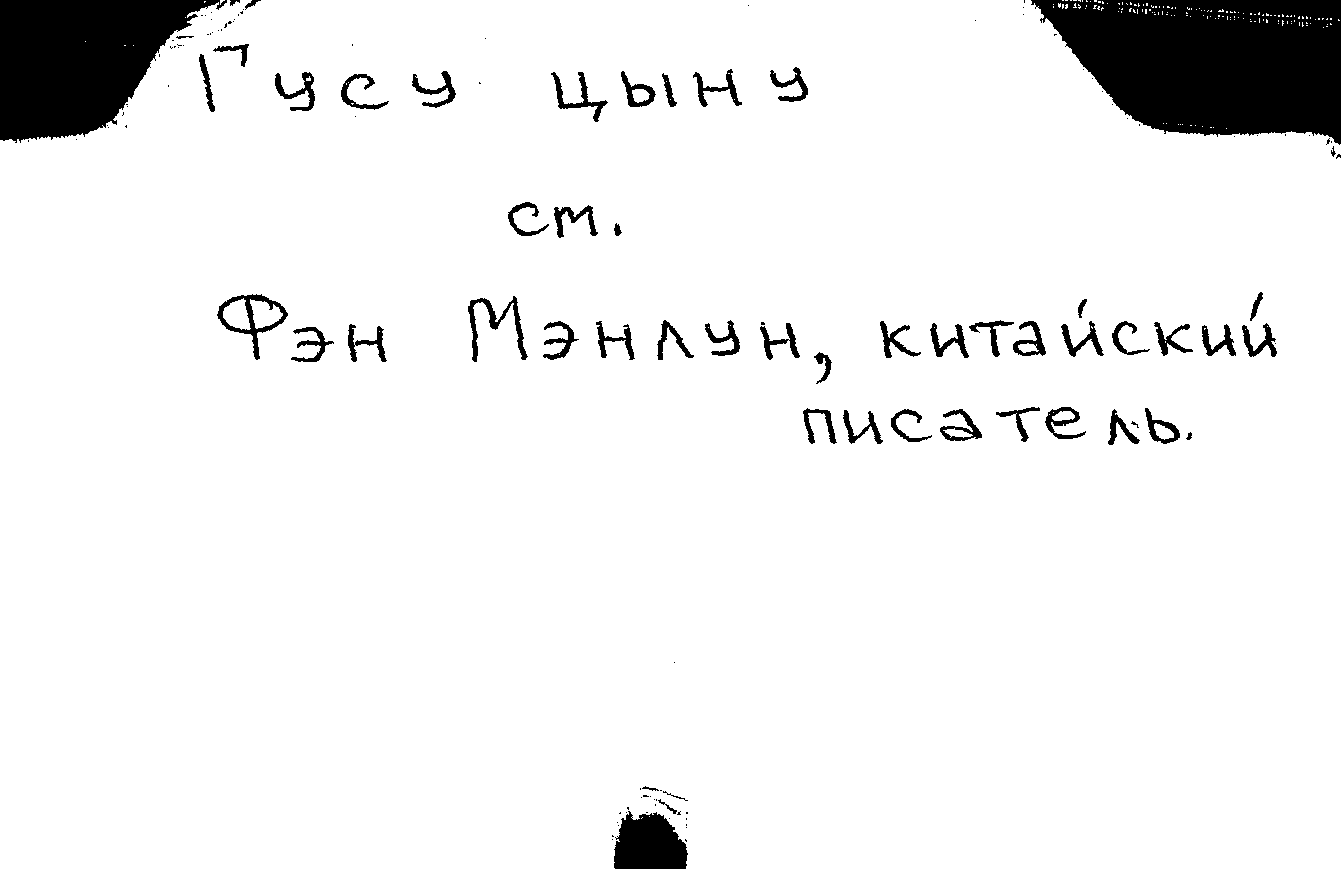 Гусу цыну
см.
Фэн Мэнлун, китайский
писатель.